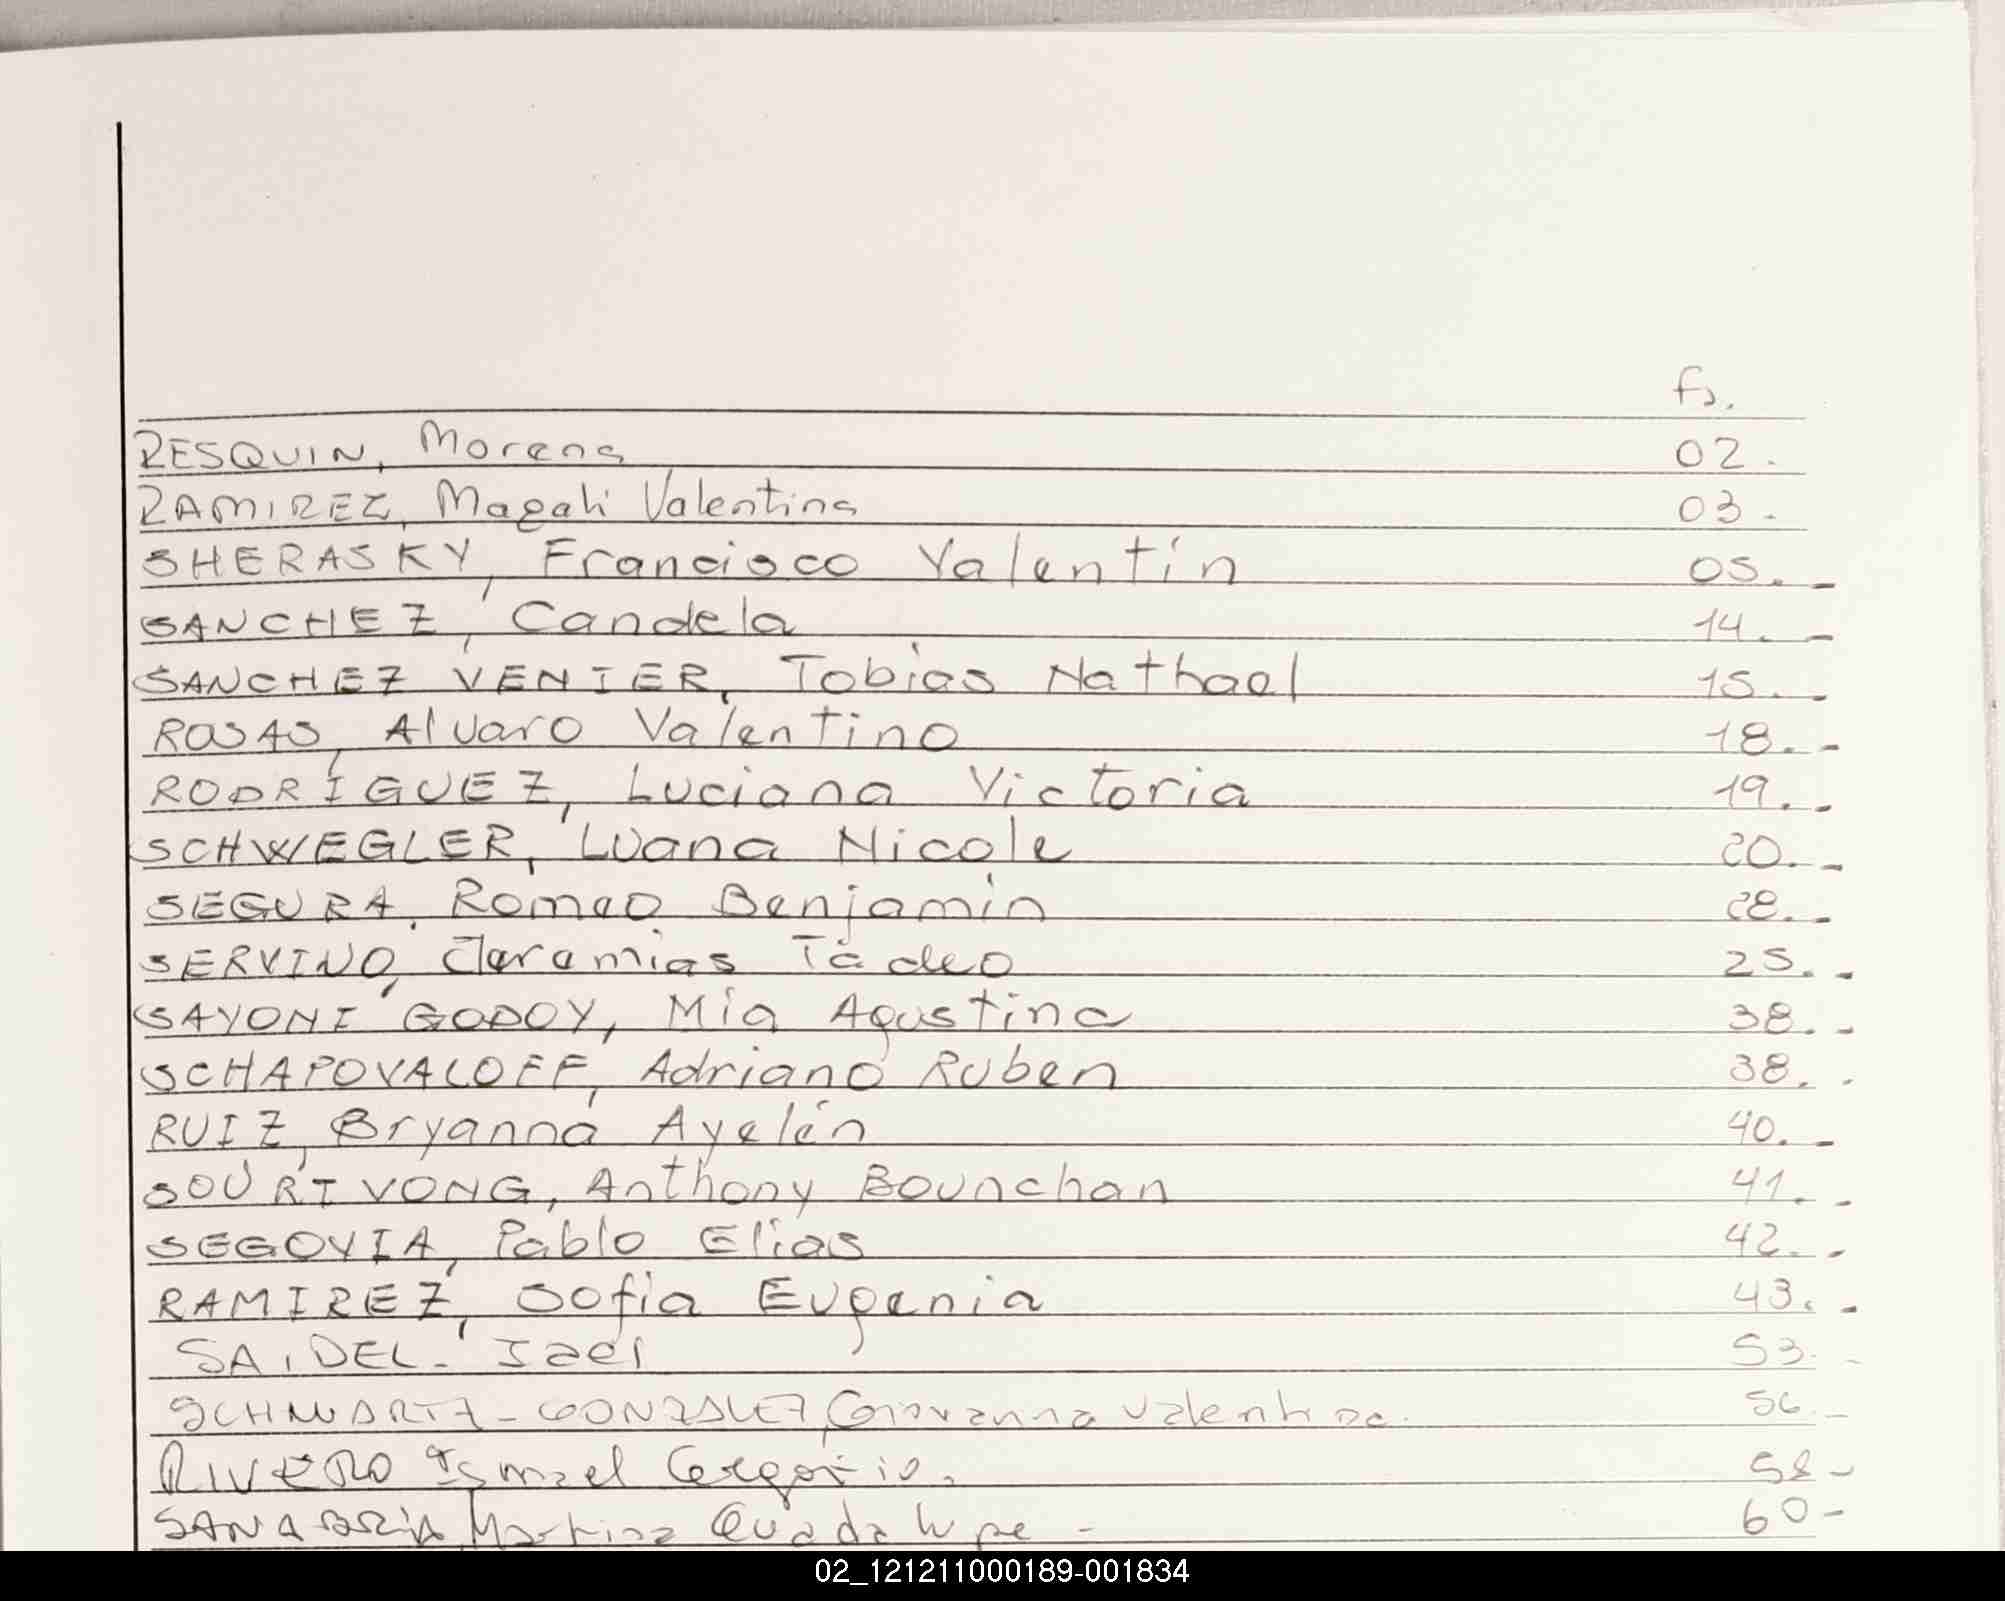 fs.
RESQUIN, Morena 02.
RAMIREZ, Magali Valentina 03.
SHERASKY, Francisco Valentín 05.-
SANCHEZ, Candela 14.-
SANCHEZ VENIER, Tobías Nathael 15.-
ROSAS, Alvaro Valentino 18.-
RODRÍGUEZ, Luciana Victoria 19.-
SCHWEGLER, Luana Nicole 20.-
SEGURA, Romeo Benjamín
SERVINO, Jeremías Tadeo 25.-
SAYONI GODOY, Mía Agustina 38.-
SCHAPOVALOFF, Adriano Ruben 38.-
RUIZ, Bryanna Ayelén 40.-
SOURIVONG, Anthony Bounchan 41.-
SEGOVIA, Pablo Elias 42.-
RAMIREZ, Sofía Eugenia 43.-
SAIDEL. Izel 53.-
SCHWARTZ - GONZALEZ, Giovanna Valentina. 56.-
RIVERO Ismael Gregorio. 58-
SANABRIA, Martina Guadalupe - 60-
02_121211000189-001834